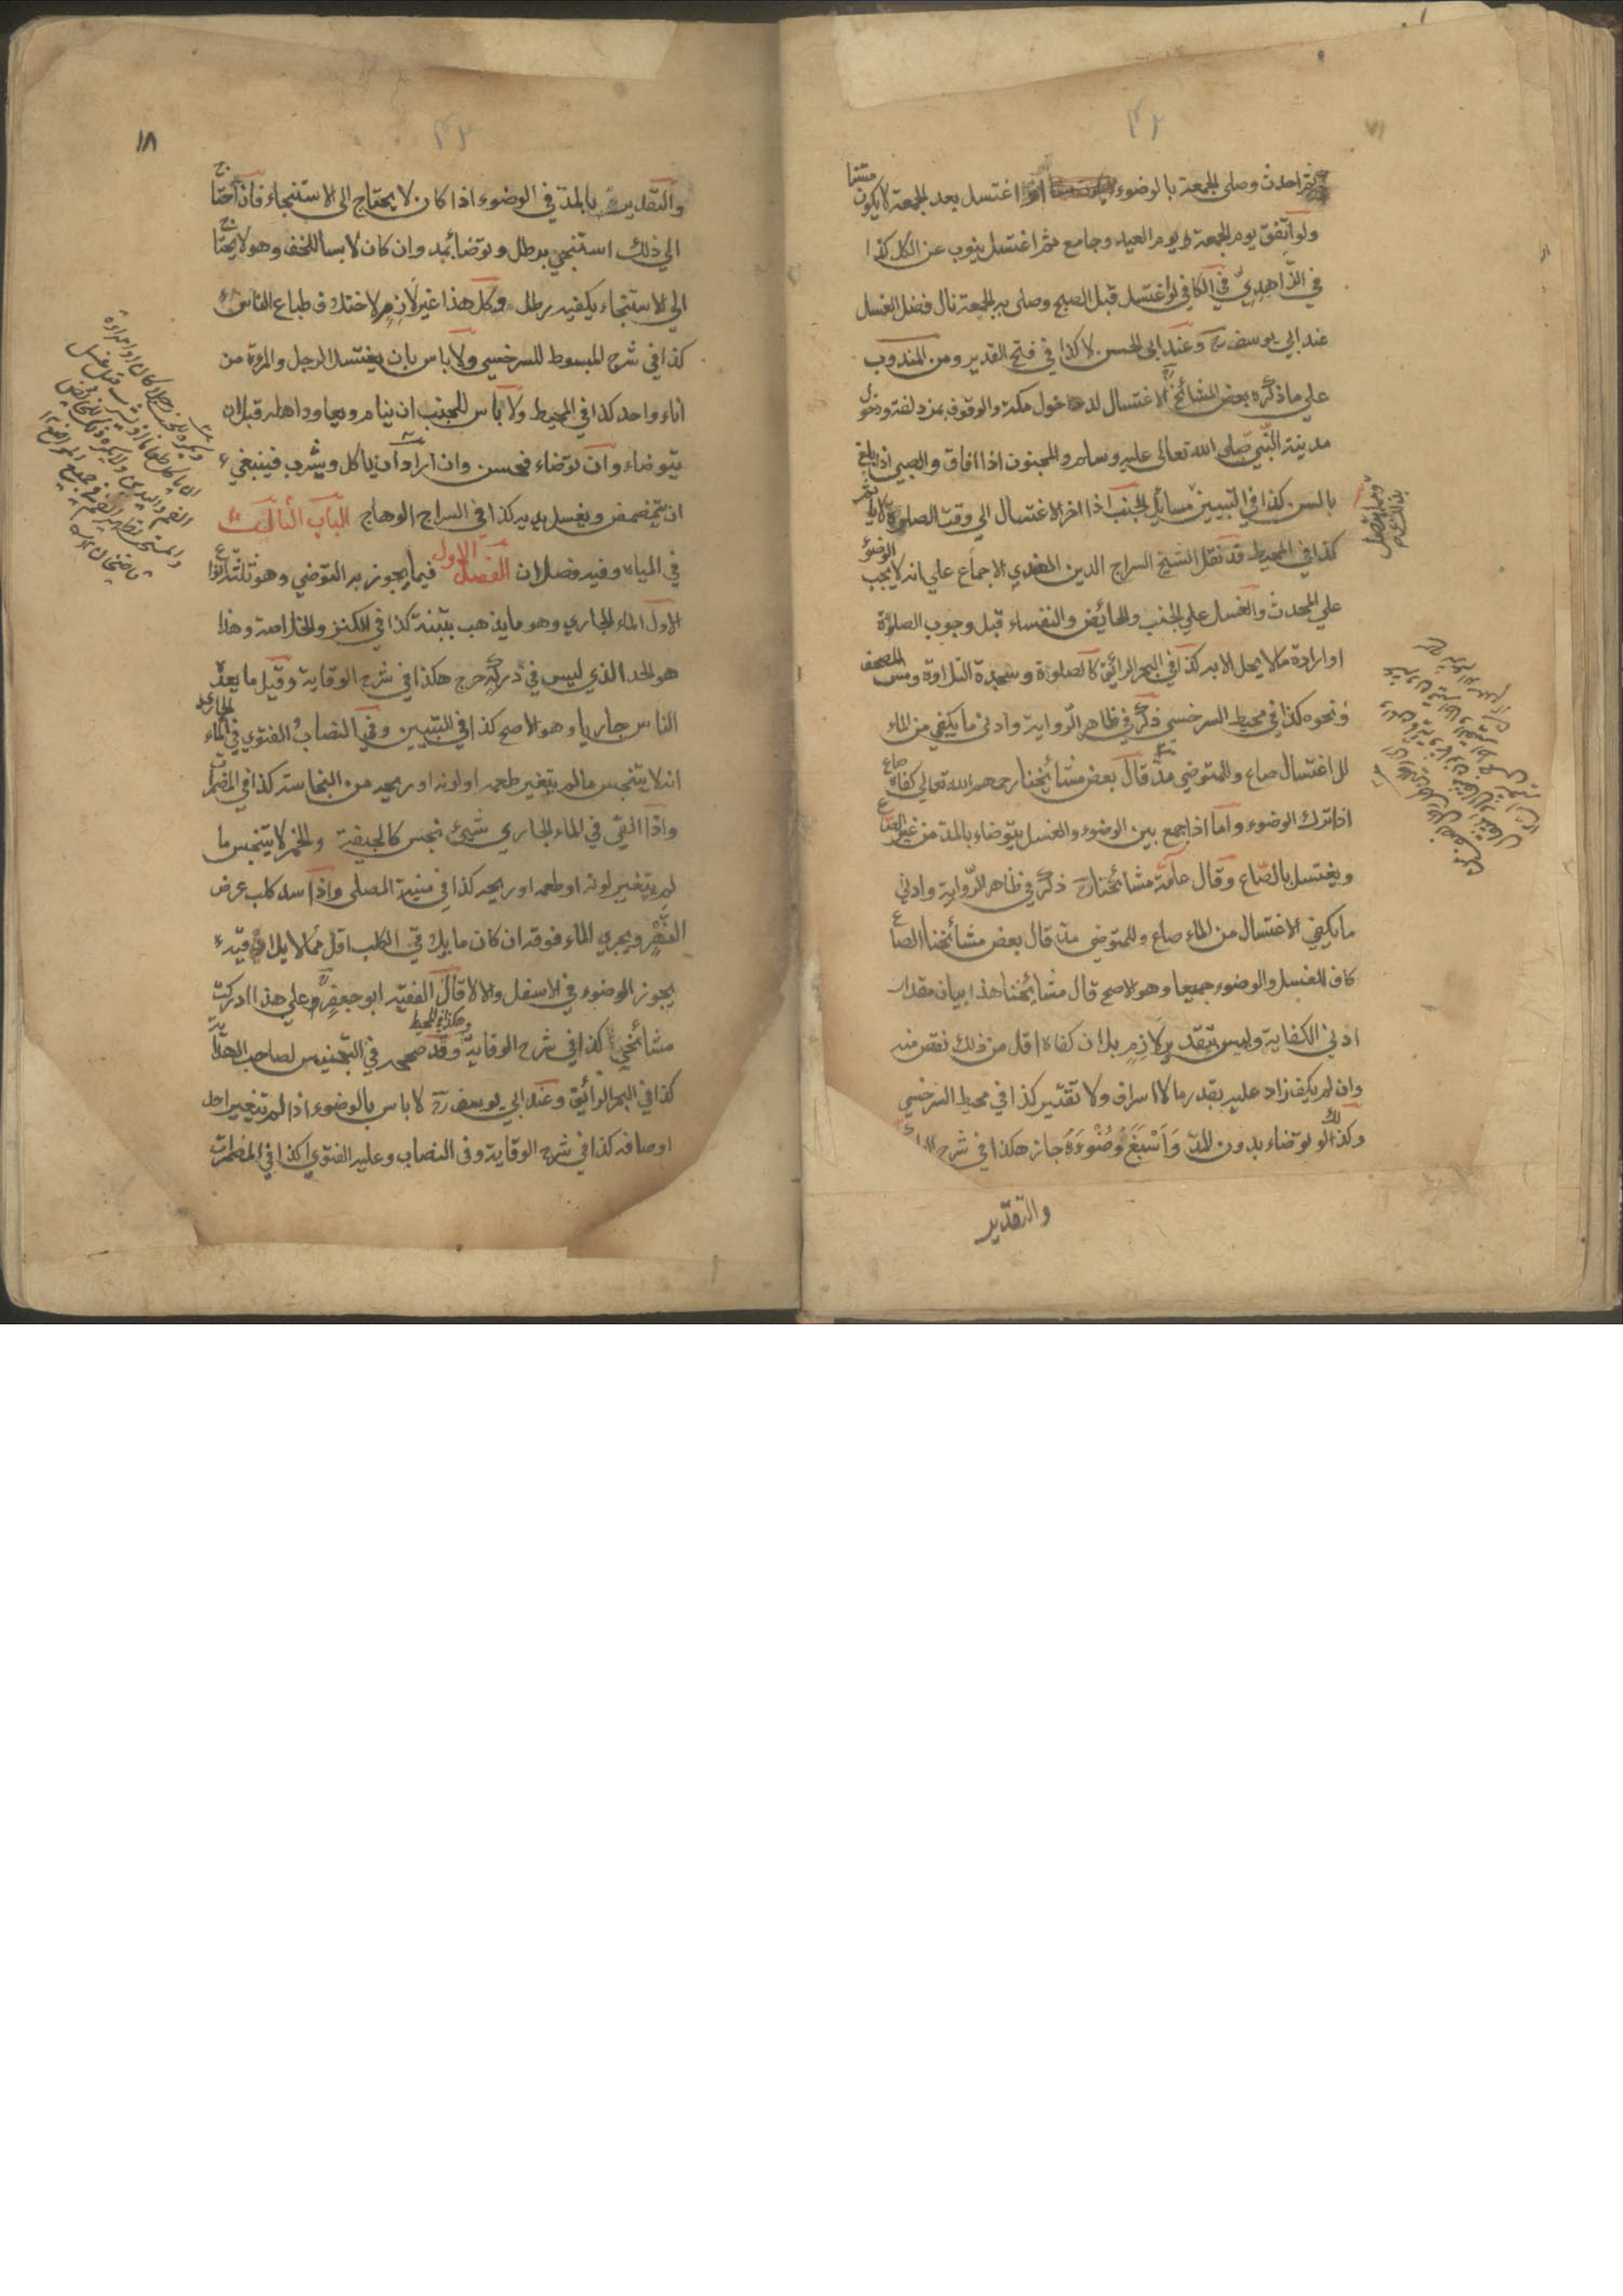 ثم احدث وصلى الجمعة بالوضوء ثم اغتسل بعد الجمعة لا يكون مقيما
ولو اتفق يوم الجمعة و يوم العيد وجامع ثم اغتسل ينوب عن الكل كذا
في الزاهِدِيّ في الكافي لو اغتسل قبل الصبح وصلى به الجمعة نال فضل الغسل
عند ابي يوسف رح وعند ابى الحسن لا كذا في فتح القدير ومن المندوب
علي ما ذكره بعض المشائخ رح الاغتسال لدخول مكة والوقوف بمزدلفة ودخول
مدينة النّبي صلى الله تعالى عليه وسلم والمجنون اذا افاق والصبي اذا بلغ
بالسن كذا في التبيين مسائل الجنب اذا اخر الاغتسال الي وقت الصلوة لا ياثم
كذا في المحيط قد نقل الشيخ السراج الدين الهندي الاجماع علي انه لا يجب الوضوء
علي المحدث والغسل علي الجنب والحائض والنفساء قبل وجوب الصلوة
او ارادة ما لا يحل الا به كذا في البحر الرائق كالصلوة وسجدة التلاوة ومس المصحف
ونحوه كذا في محيط السرخسي ذكر في ظاهر الرّواية وادنى ما يكفي من الماء
للاغتسال صاع وللمتوضي مدّ قال بعض مشائخنا رحمهم الله تعالي كفاه صاع
اذا ترك الوضوء واما اذا جمع بين الوضوء والغسل يتوضاء بالمد من غير الصاع
ويغتسل بالصّاع وقال عامّة مشائخنا رح ذكر في ظاهر الرّواية وادني
ما يكفي الاغتسال من الماء صاع وللمتوضي مد قال بعض مشائخنا الصاع
كاف للغسل والوضوء جميعا وهو الاصح قال مشائخنا هذا بيان مقدار
ادني الكفاية وليس بتقدير لازم بل ان كفاه اقل من ذلك نقص منه
وان لم يكف زاد عليه بقدر ما لا اسراف ولا تقتير كذا في محيط السرخسي
وكذلك لو توضاء بدون المدّ وَاَسْبَغَ وُضُوْءَهُ جاز هكذا في شرح
والتقدير
١٨
والتقدير بالمد في الوضوء اذا كان لا يحتاج الى الاستنجاء فاذا احتاج
الي ذلك استنجي برطل وتوضا بمد وان كان لابسا للخف وهو لا يحتاج
الي الاستنجاء يكفيه رطل وكل هذا غير لازم لاختلاف طباع الناس
كذا في شرح المبسوط للسرخسي ولا باس بان يغتسل الرجل والمرءة من
اناء واحد كذا في المحيط ولا باس للجنب ان ينام ويعاود اهله قبل ان
يتوضاء وان توضاء فحسن وان اراد ان ياكل ويشرب فينبغي
ان يتمضمض ويغسل يديه كذا في السراج الوهاج الباب الثالث
في المياه وفيه فصلان الفصل الاول فيما يجوز به التوضي وهو ثلثة انواع
الاول الماء الجاري وهو ما يذهب بتبنة كذا في الكنز والخلاصة وهذا
هو الحد الذي ليس في دركه حرج هكذا في شرح الوقاية وقيل ما يعدّه
الناس جاريا وهو الاصح كذا في التبيين وفي النصاب الفتوي في الماء الجاري
انه لا يتنجس ما لم يتغير طعمه او لونه او ريحه من النجاسة كذا في المضمرات
واذا القي في الماء الجاري شيئ نجس كالجيفة والخمر لا يتنجس ما
لم يتغير لونه او طعمه او ريحه كذا في منية المصلي واذا سد كلب عرض
النَّهْرِ ويجري الماء فوقه ان كان ما يلاقي الكلب اقل مما لا يلاقيه
يجوز الوضوء في الاسفل والا لا قال الفقيه ابو جعفر رح وعلي هذا ادركت
مشائخي كذا في شرح الوقاية وهكذا في المحيط وقد صححه في التجنيس لصاحب الهداية
كذا في البحر الرائق وعند ابي يوسف رح لا باس بالوضوء اذا لم يتغير احد
اوصافه كذا في شرح الوقاية وفى النصاب وعليه الفتوي كذا في المضمرات